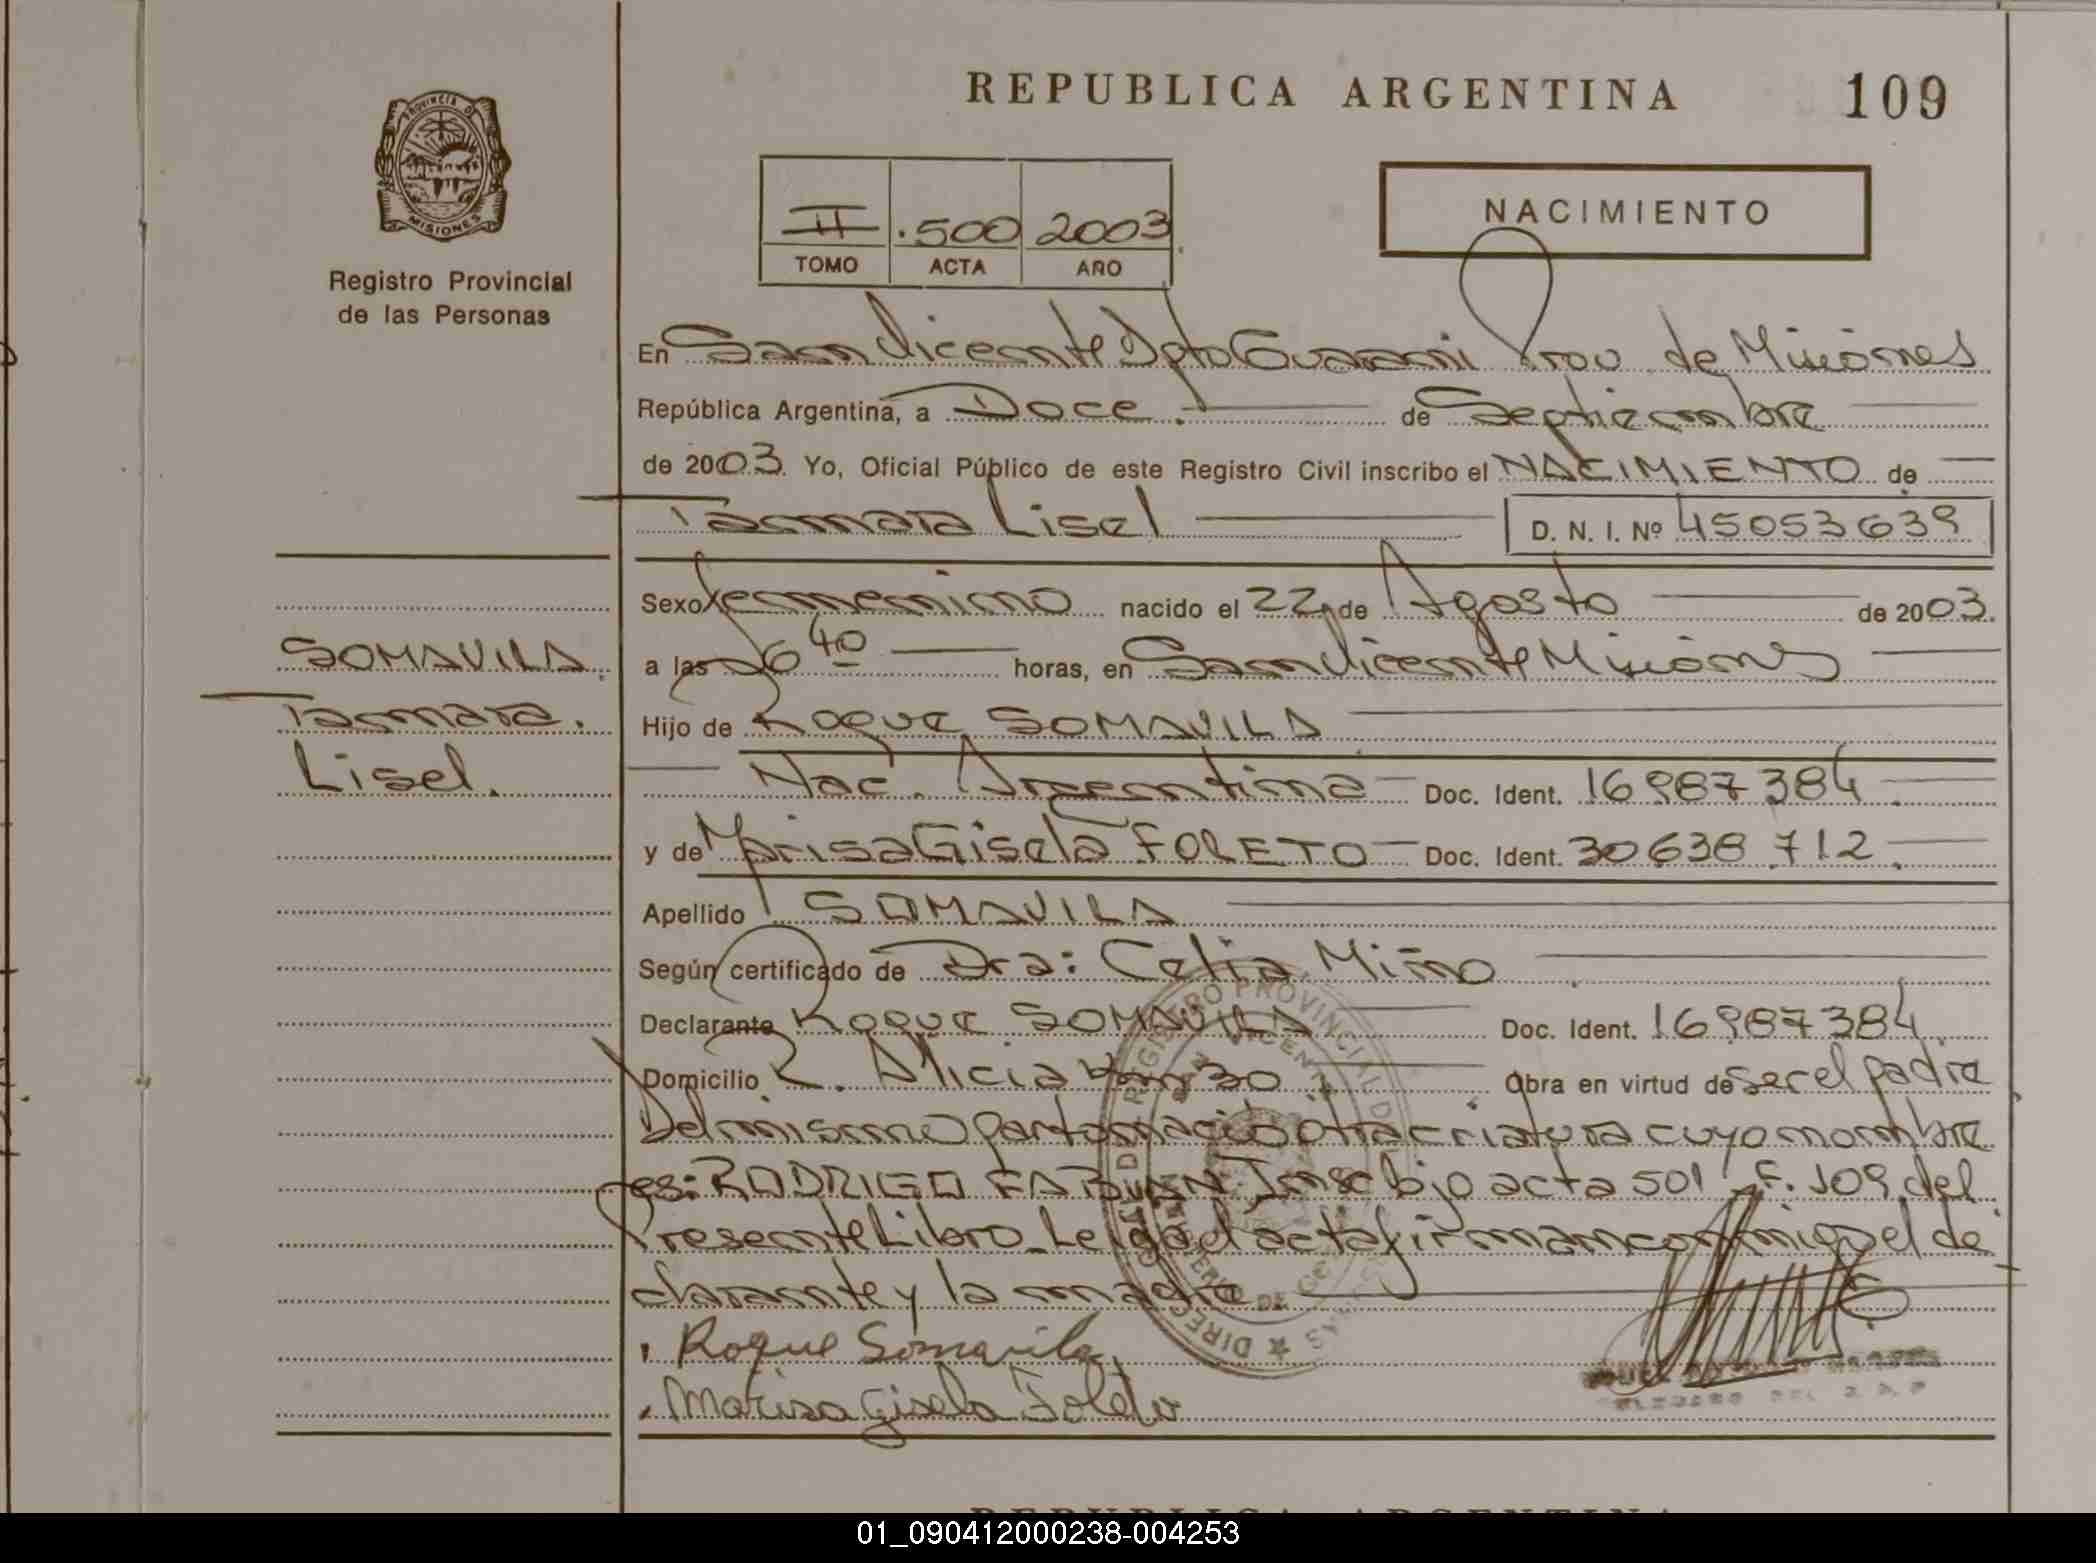 REPUBLICA ARGENTINA
109
PROVINCIA DE
MISIONES
Registro Provincial
de las Personas
II .500 2003
TOMO ACTA AÑO
NACIMIENTO
En San Vicente Dpto Guarani Prov. de Misiones
República Argentina, a Doce. de Septiembre
de 2003. Yo, Oficial Público de este Registro Civil inscribo el NACIMIENTO de
Tamara Lisel D. N. I. Nº 45053639
Sexo femenino nacido el 22 de Agosto de 2003.
SOMAVILA.
a las 06 40 horas, en San Vicente Misiones
Tamara.
Hijo de Roque SOMAVILA
Lisel.
Nac. Argentina Doc. Ident. 16987384
y de Marisa Gisela FOLETO Doc. Ident. 30638712.
Apellido SOMAVILA
Según certificado de Dra: Celia Miño
Declarante Roque SOMAVILA Doc. Ident. 16987384
Domicilio C. Alicia km 30 Obra en virtud de ser el padre
Del mismo parto nació otra criatura cuyo nombre
es: RODRIGO FABIAN Insc bjo acta 501 F. 109 del
Presente Libro. Leida el acta firman conmigo el de
clarante y la madre
Roque Somavila
Marisa Gisela Foleto
REPUBLICA ARGENTINA
01_090412000238-004253